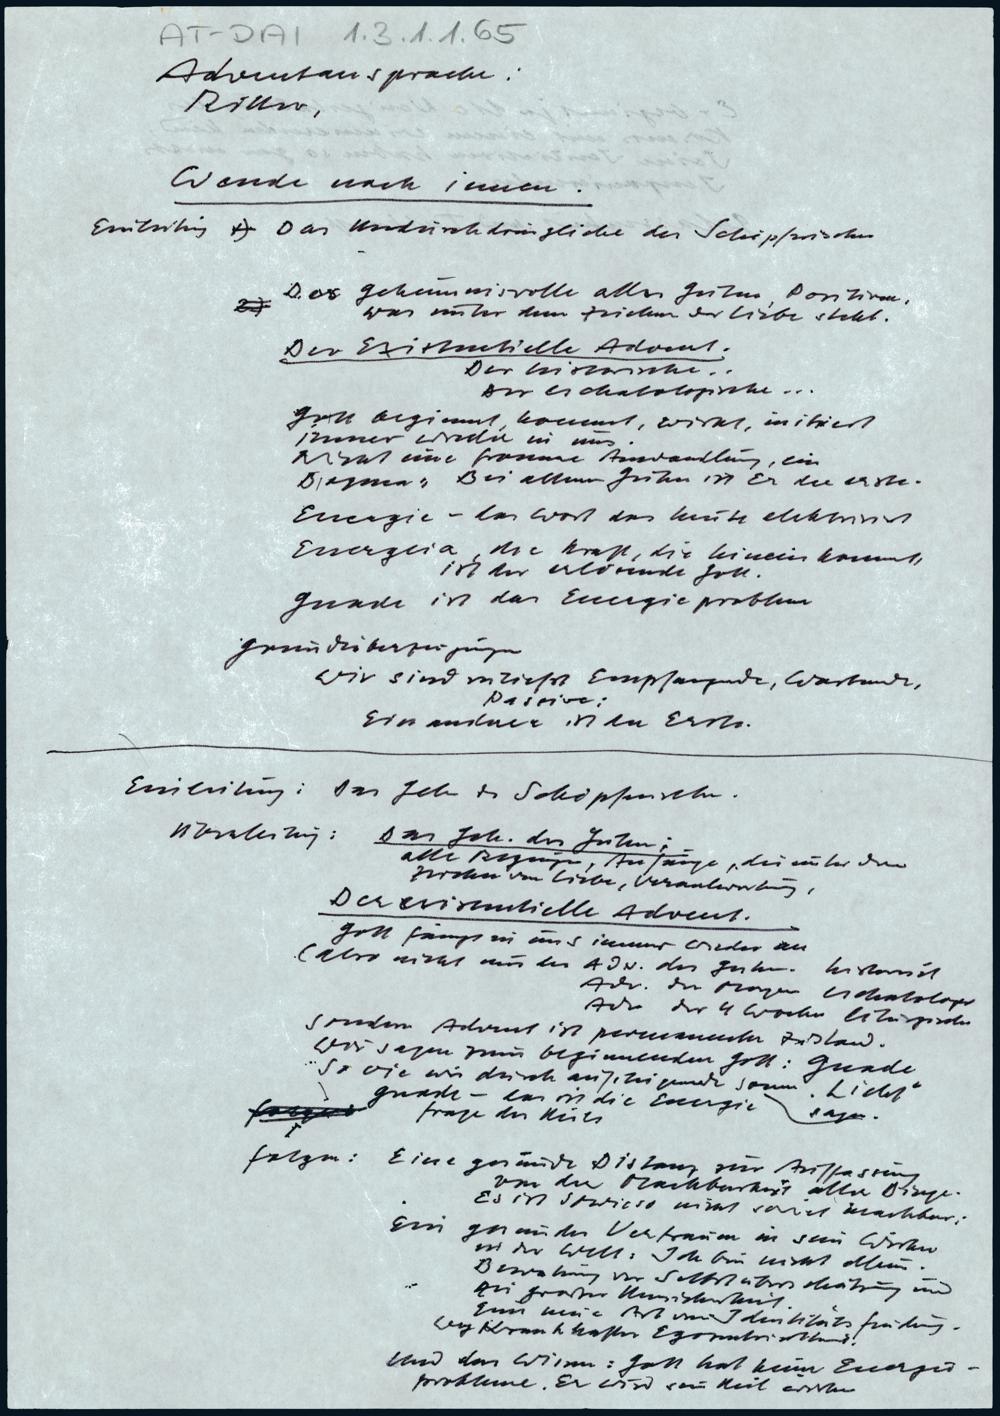 AT-DAI 1.3.1.1.65
Adventansprache:
Ritter,
Wende nach innen.
Einleitung 1) Das Undurchdringliche des Schöpferischen
2) Das geheimnisvolle alles Guten, Positiven,
was unter dem Zeichen der Liebe steht.
Der Existentielle Advent.
Der historische ..
Der Eschatologische ...
Gott beginnt, kommt, wirkt, initiiert
immer wieder in uns.
Nicht eine fromme Anwandlung, ein
Dogma: Bei allem Guten ist Er der erste.
Energie - das Wort das heute elektrisiert
Energeia, die Kraft, die hineinkommt,
ist der erlösende Gott.
Gnade ist das Energieproblem
Grundüberzeugungen
Wir sind zutiefst Empfangende, Wartende,
Passive:
Ein anderer ist der Erste.
Einleitung: Das Geh. des Schöpferischen.
Überleitung: Das Geh. des Guten:
alle Regungen, Anfänge, die unter dem
Zeichen von Liebe, Verantwortung,
Der existentielle Advent.
Gott fängt in uns immer wieder an
(also nicht nur der Adv. des Gestern. historisch
Adv. des Morgen eschatologisch
Adv. der 4 Wochen liturgische
sondern Advent ist permanenter Zustand.
Wir sagen zum beginnenden Gott: Gnade
So wie wir durch aufsteigende Sonne "Licht"
sagen.
Gnade - das ist die Energie
frage des Heils
Folgen: Eine gesunde Distanz zur Auffassung
von der Machbarkeit aller Dinge.
Es ist sowieso nicht soviel machbar:
Ein gesundes Vertrauen in sein Wirken
in der Welt: Ich bin nicht allein.
Bewahrung vor Selbstüberschätzung und
die große Unsicherheit.
Eine neue Art von Identitätsfindung.
weg krankhafter Egozentrik
Und das Wissen: Gott hat keine Energie-
probleme. Er wird sein Heil wirken